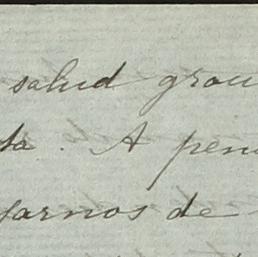 salud grau
ta. A pena
garnos de